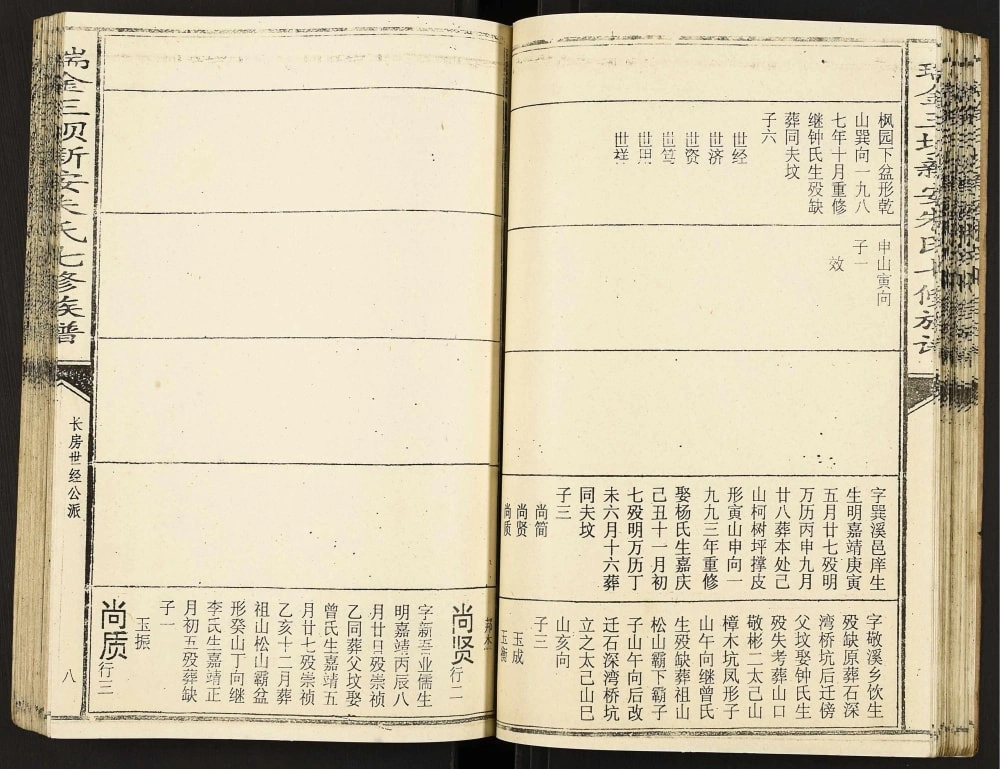 枫园下盆形乾
山巽向一九八
七年十月重修
继钟氏生殁缺
葬同夫坟
子六
世经
世济
世资
世笃
世田
世祥
申山寅向
子一
效
字巽溪邑庠生
生明嘉靖庚寅
五月廿七殁明
万历丙申九月
廿八葬本处己
山柯树坪撑皮
形寅山申向一
九九三年重修
娶杨氏生嘉庆
己丑十一月初
七殁明万历丁
未六月十六葬
同夫坟
子三
尚简
尚贤
尚质
字敬溪乡饮生
殁缺原葬石深
湾桥坑后迁傍
父坟娶钟氏生
殁失考葬山口
敬彬二太己山
樟木坑凤形子
山午向继曾氏
生殁缺葬祖山
松山霸下霸子
子山午向后改
迁石深湾桥坑
立之太己山巳
山亥向
子三
玉成
玉衡
尚贤 行二
字新吾业儒生
明嘉靖丙辰八
月廿日殁崇祯
乙同葬父坟娶
曾氏生嘉靖五
月廿七殁崇祯
乙亥十二月葬
祖山松山霸盆
形癸山丁向继
李氏生嘉靖正
月初五殁葬缺
子一
玉振
尚质 行三
瑞金三坝新安朱氏七修族谱
长房世经公派
八